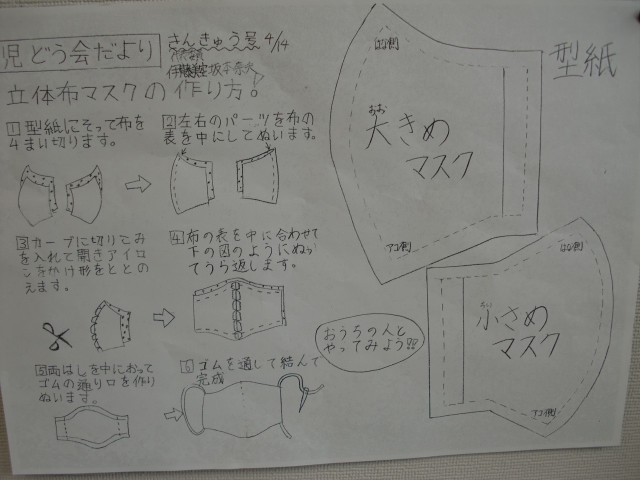 児どう会だより
さんきゅう号 4/14
立体布マスクの作り方。
1 型紙にそって布を
4まい切ります。
2 左右のパーツを布の
表を中にしてぬいます。
3 カーブに切りこみ
を入れて開きアイロ
ンをかけ形をととの
えます。
4 布の表を中に合わせて
下の図のようにぬっ
てうら返します。
5 両はしを中におって
ゴムの通り口を作り
ぬいます。
6 ゴムを通して結んで
完成
おうちの人と
やってみよう!!
型紙
はな側
おお
大きめ
マスク
アゴ側
はな側
小さめ
マスク
アゴ側